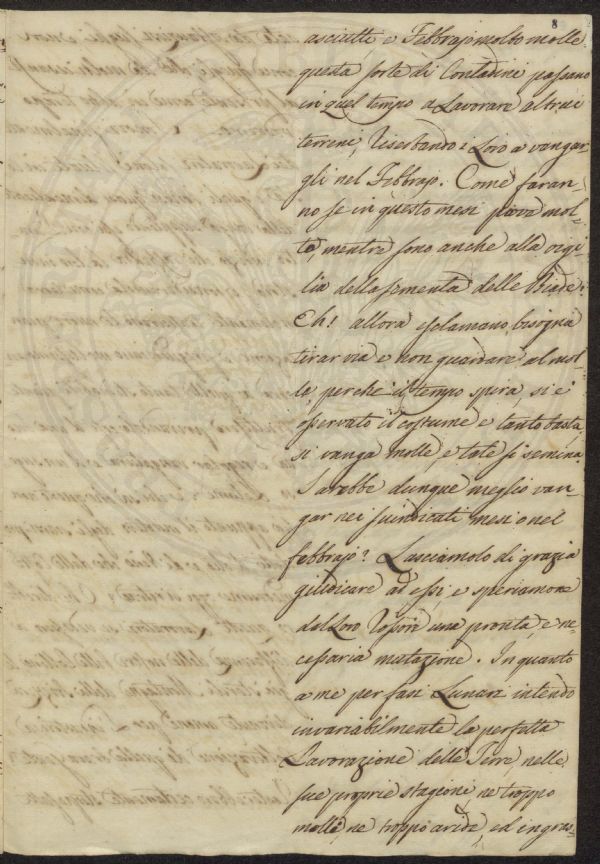 8
asciutti e Febbrajo molto molle
questa sorte di Contadini passano
in quel tempo a Lavorare altrui
terreni, Riserbando i Loro a vangar
gli nel Febbrajo. Come faran-
no se in questo mesi piova mol-
to, mentre sono anche alla vigi-
lia della sementa delle Biade?
Eh! allora esclamano, bisogna
tirar via e non guardare al mol-
le, perché il tempo spira, si è
osservato il costume e tanto basta
si vanga molle, e tale si semina.
Sarebbe dunque meglio van-
gar nei suindicati mesi o nel
febbrajo? Lasciamolo di grazia
giudicare ad essi, e speriamone
dal Loro Rossore una pronta, e ne-
cessaria mutazione. In quanto
a me per fasi Lunari intendo
invariabilmente la perfetta
Lavorazione delle Terre nelle
sue proprie stagioni ne troppo
molli, ne troppo aride, ed ingras-